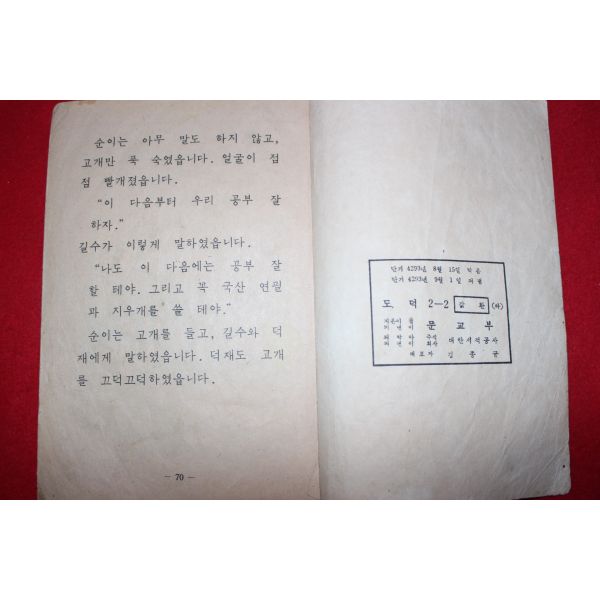 순이는 아무 말도 하지 않고,
고개만 푹 숙였읍니다. 얼굴이 점
점 빨개졌읍니다.
“이 다음부터 우리 공부 잘
하자.”
길수가 이렇게 말하였읍니다.
“나도 이 다음에는 공부 잘
할 테야. 그리고 꼭 국산 연필
과 지우개를 쓸 테야.”
순이는 고개를 들고, 길수와 덕
재에게 말하였읍니다. 덕재도 고개
를 끄덕끄덕하였읍니다.
— 70 —
단기 4293년 8월 15일 박음
단기 4293년 9월 1일 펴냄
도덕 2—2
지은이 겸
펴낸이 문교부
대한서적공사
대표자 김